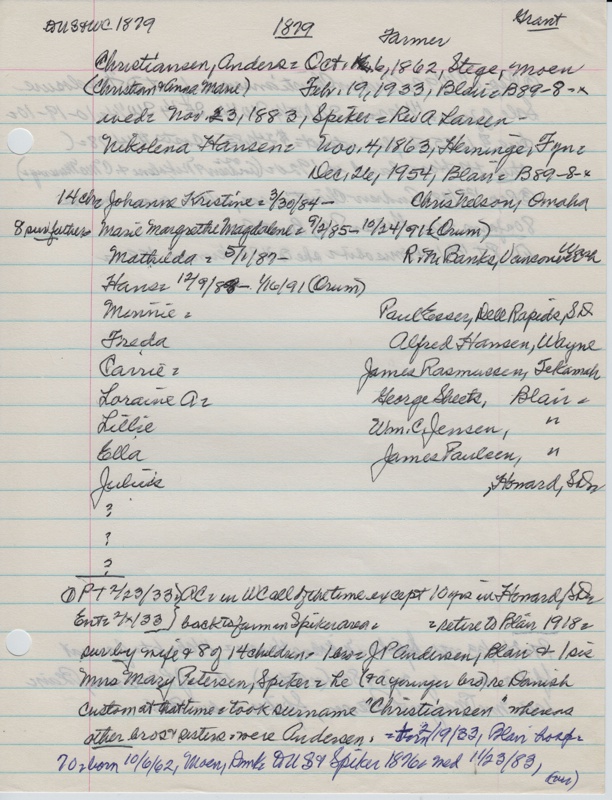 DU S & WC 1879 1879 Farmer Grant
Christiansen, Anders = Oct. 6, 1862, Stege, Moen
(Christian & Anna Marie) Feb. 19, 1933, Blair = B89-8-x
wed = Nov. 23, 1883, Spiker = Rev A Larsen -
Nikolena Hansen = Nov. 4, 1863, Herninge, Fyn =
Dec. 26, 1954, Blair = B89-8-x
14 ch = Johanne Kristine = 3/30/84 - Chris Nelson, Omaha
8 surv father = Marie Margrethe Magdalene = 9/2/85 - 10/24/91 = (Orum)
Mathieda = 5/1/87 - R.M. Banks, Vancouver Wash
Hans = 12/9/88 - 1/16/91 (Orum)
Minnie = Paul Esser, Dell Rapids, SD
Freda Alfred Hansen, Wayne
Carrie = James Rasmussen, Tekamah
Loraine A = George Sheets, Blair =
Lillie Wm. C. Jensen, "
Ella James Paulsen, "
Julius , Howard, SD
?
?
?
① PT 2/23/33 } AC = in WC all of the time except 10 yrs in Howard, SD
Ent = 2/ /33 } back to farm in Spiker area = = retire to Blair 1918 =
sur by wife & 8 of 14 children = 1 bro = J P Andersen, Blair & 1 sis
Mrs Mary Petersen, Spiker = he (& a younger bro) re Danish
custom at that time = took surname "Christiansen" whereas
other bros & sisters = were Andersen. = 2/19/33, Blair hosp =
70 = born 10/6/62, Moen, Dmk = DU S & Spiker 1876 = wed 11/23/83,
(over)